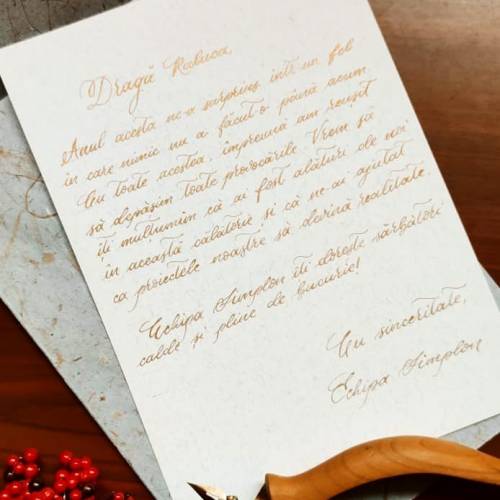 Dragă Raluca,
Anul acesta ne-a surprins într-un fel
în care nimic nu a făcut-o până acum.
Cu toate acestea, împreună am reușit
să depășim toate provocările. Vrem să
îți mulțumim că ai fost alături de noi
în această călătorie și că ne-ai ajutat
ca proiectele noastre să devină realitate.
Echipa Simplon îți dorește sărbători
calde și pline de bucurie!
Cu sinceritate,
Echipa Simplon